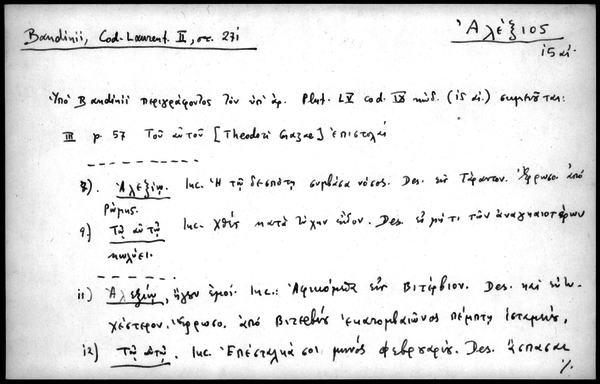 Bandinii, Cod. Laurent. II, σε. 271
Ἀλέξιος
ι5 αἰ.
Ὑπὸ Bandinii περιγράφοντος τὸν ὑπ' ἀρ. Plut. LV cod. IX κώδ. (ι5 αἰ.) σημειοῦται:
III p. 57 Τοῦ αὐτοῦ [Theodori Gazae] ἐπιστολαί
8). Ἀλεξίῳ. Inc. Ἡ τῷ δεσπότῃ συμβᾶσα νόσος. Des. εἰς Τάραντον. Ἔρρωσο ἀπὸ
Ῥώμης.
9.) Τῷ αὐτῷ Inc. Χθὲς κατὰ τύχην εἶδον. Des. εἰ μή τι τῶν ἀναγκαιοτέρων
κωλύει.
11) Ἀλεξίῳ, Inc.: Ἀφικόμεθα εἰς Βιτέρβιον. Des. καὶ
χέστερον. Ἔρρωσο. ἀπὸ Βιτερβίου ἑκατομβαιῶνος πέμπτῃ ἱσταμένου.
12) Τῷ αὐτῷ. Inc. Ἐπέσταλκά σοι μηνὸς φεβρουαρίου. Des. ἄσπασαι
%